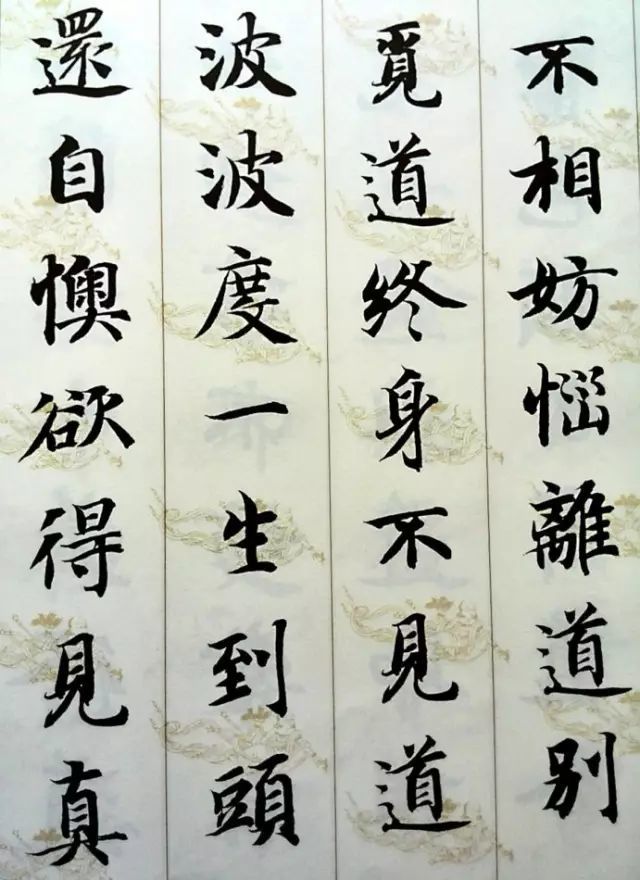 不相妨惱離道別
覓道終身不見道
波波度一生到頭
還自懊欲得見真